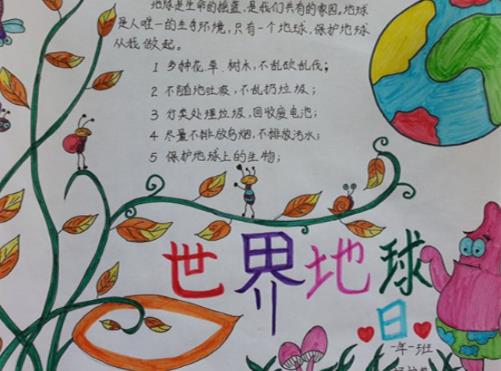 地球是生命的摇篮,是我们共有的家园,地球
是人唯一的生存环境,只有一个地球,保护地球
从我做起。
1 乡种花草、树木,不乱砍乱伐;
2 不随地吐痰,不乱扔垃圾;
3 分类处理垃圾,回收废电池;
4 尽量不排放乌烟,不排放污水;
5 保护地球上的生物;
世界地球
日
一年一班